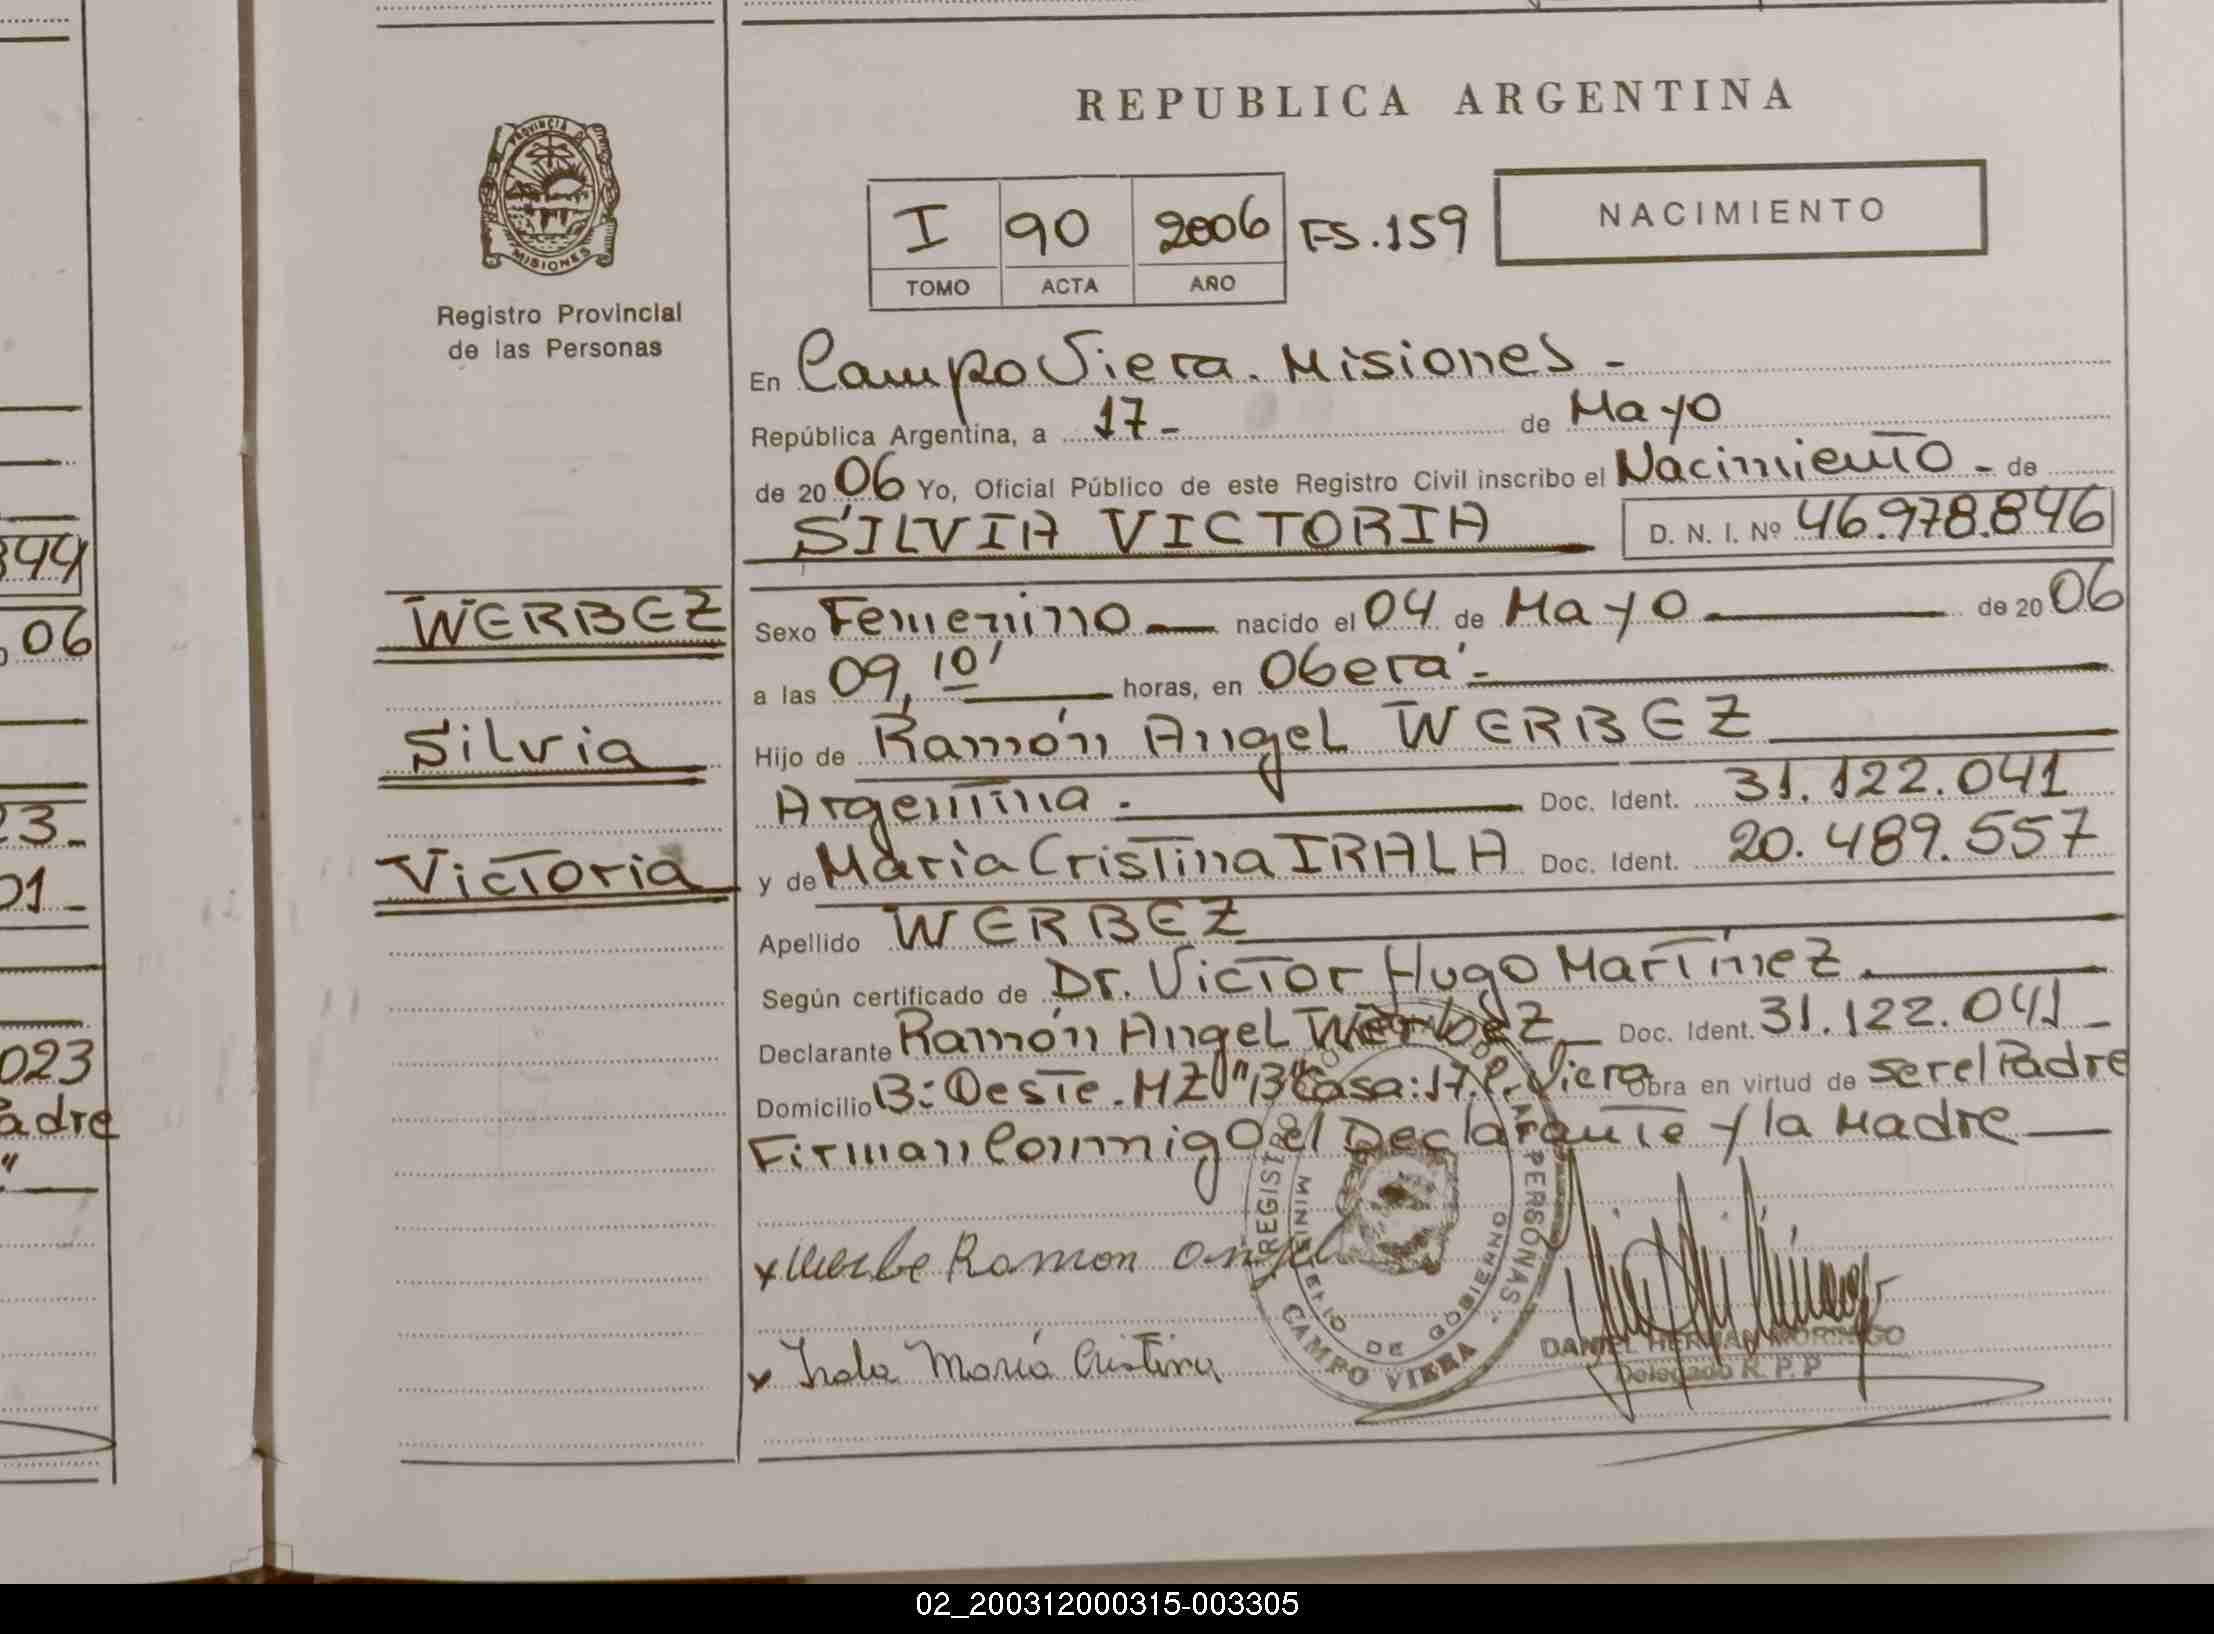 REPUBLICA ARGENTINA
PROVINCIA DE
MISIONES
Registro Provincial
de las Personas
I 90 2006 FS.159
TOMO ACTA AÑO
NACIMIENTO
En Campo Viera. Misiones -
República Argentina, a 17- de Mayo
de 20 06 Yo, Oficial Público de este Registro Civil inscribo el Nacimiento - de
SILVIA VICTORIA D. N. I. Nº 46.978.846
WERBEZ
Silvia
Victoria
Sexo Femenino nacido el 04 de Mayo de 20 06
a las 09,10' horas, en Oberá -
Hijo de Ramón Angel WERBEZ
Argentina. Doc. Ident. 31.122.041
y de María Cristina IRALA Doc. Ident. 20.489.557
Apellido WERBEZ
Según certificado de Dr. Victor Hugo Martínez
Declarante Ramón Angel Werbez Doc. Ident. 31.122.041-
Domicilio B: Oeste. MZ "B" Casa: 17. C. Viera Obra en virtud de ser el Padre
Firman Conmigo el Declarante y la Madre
x Werbe Ramon Angel
x Irala María Cristina
REGISTRO PERSONAS
MINISTERIO DE GOBIERNO
CAMPO VIERA
DANIEL HERNAN MORINIGO
Delegado R. P. P
844
06
23-
01-
023
adre
02_200312000315-003305